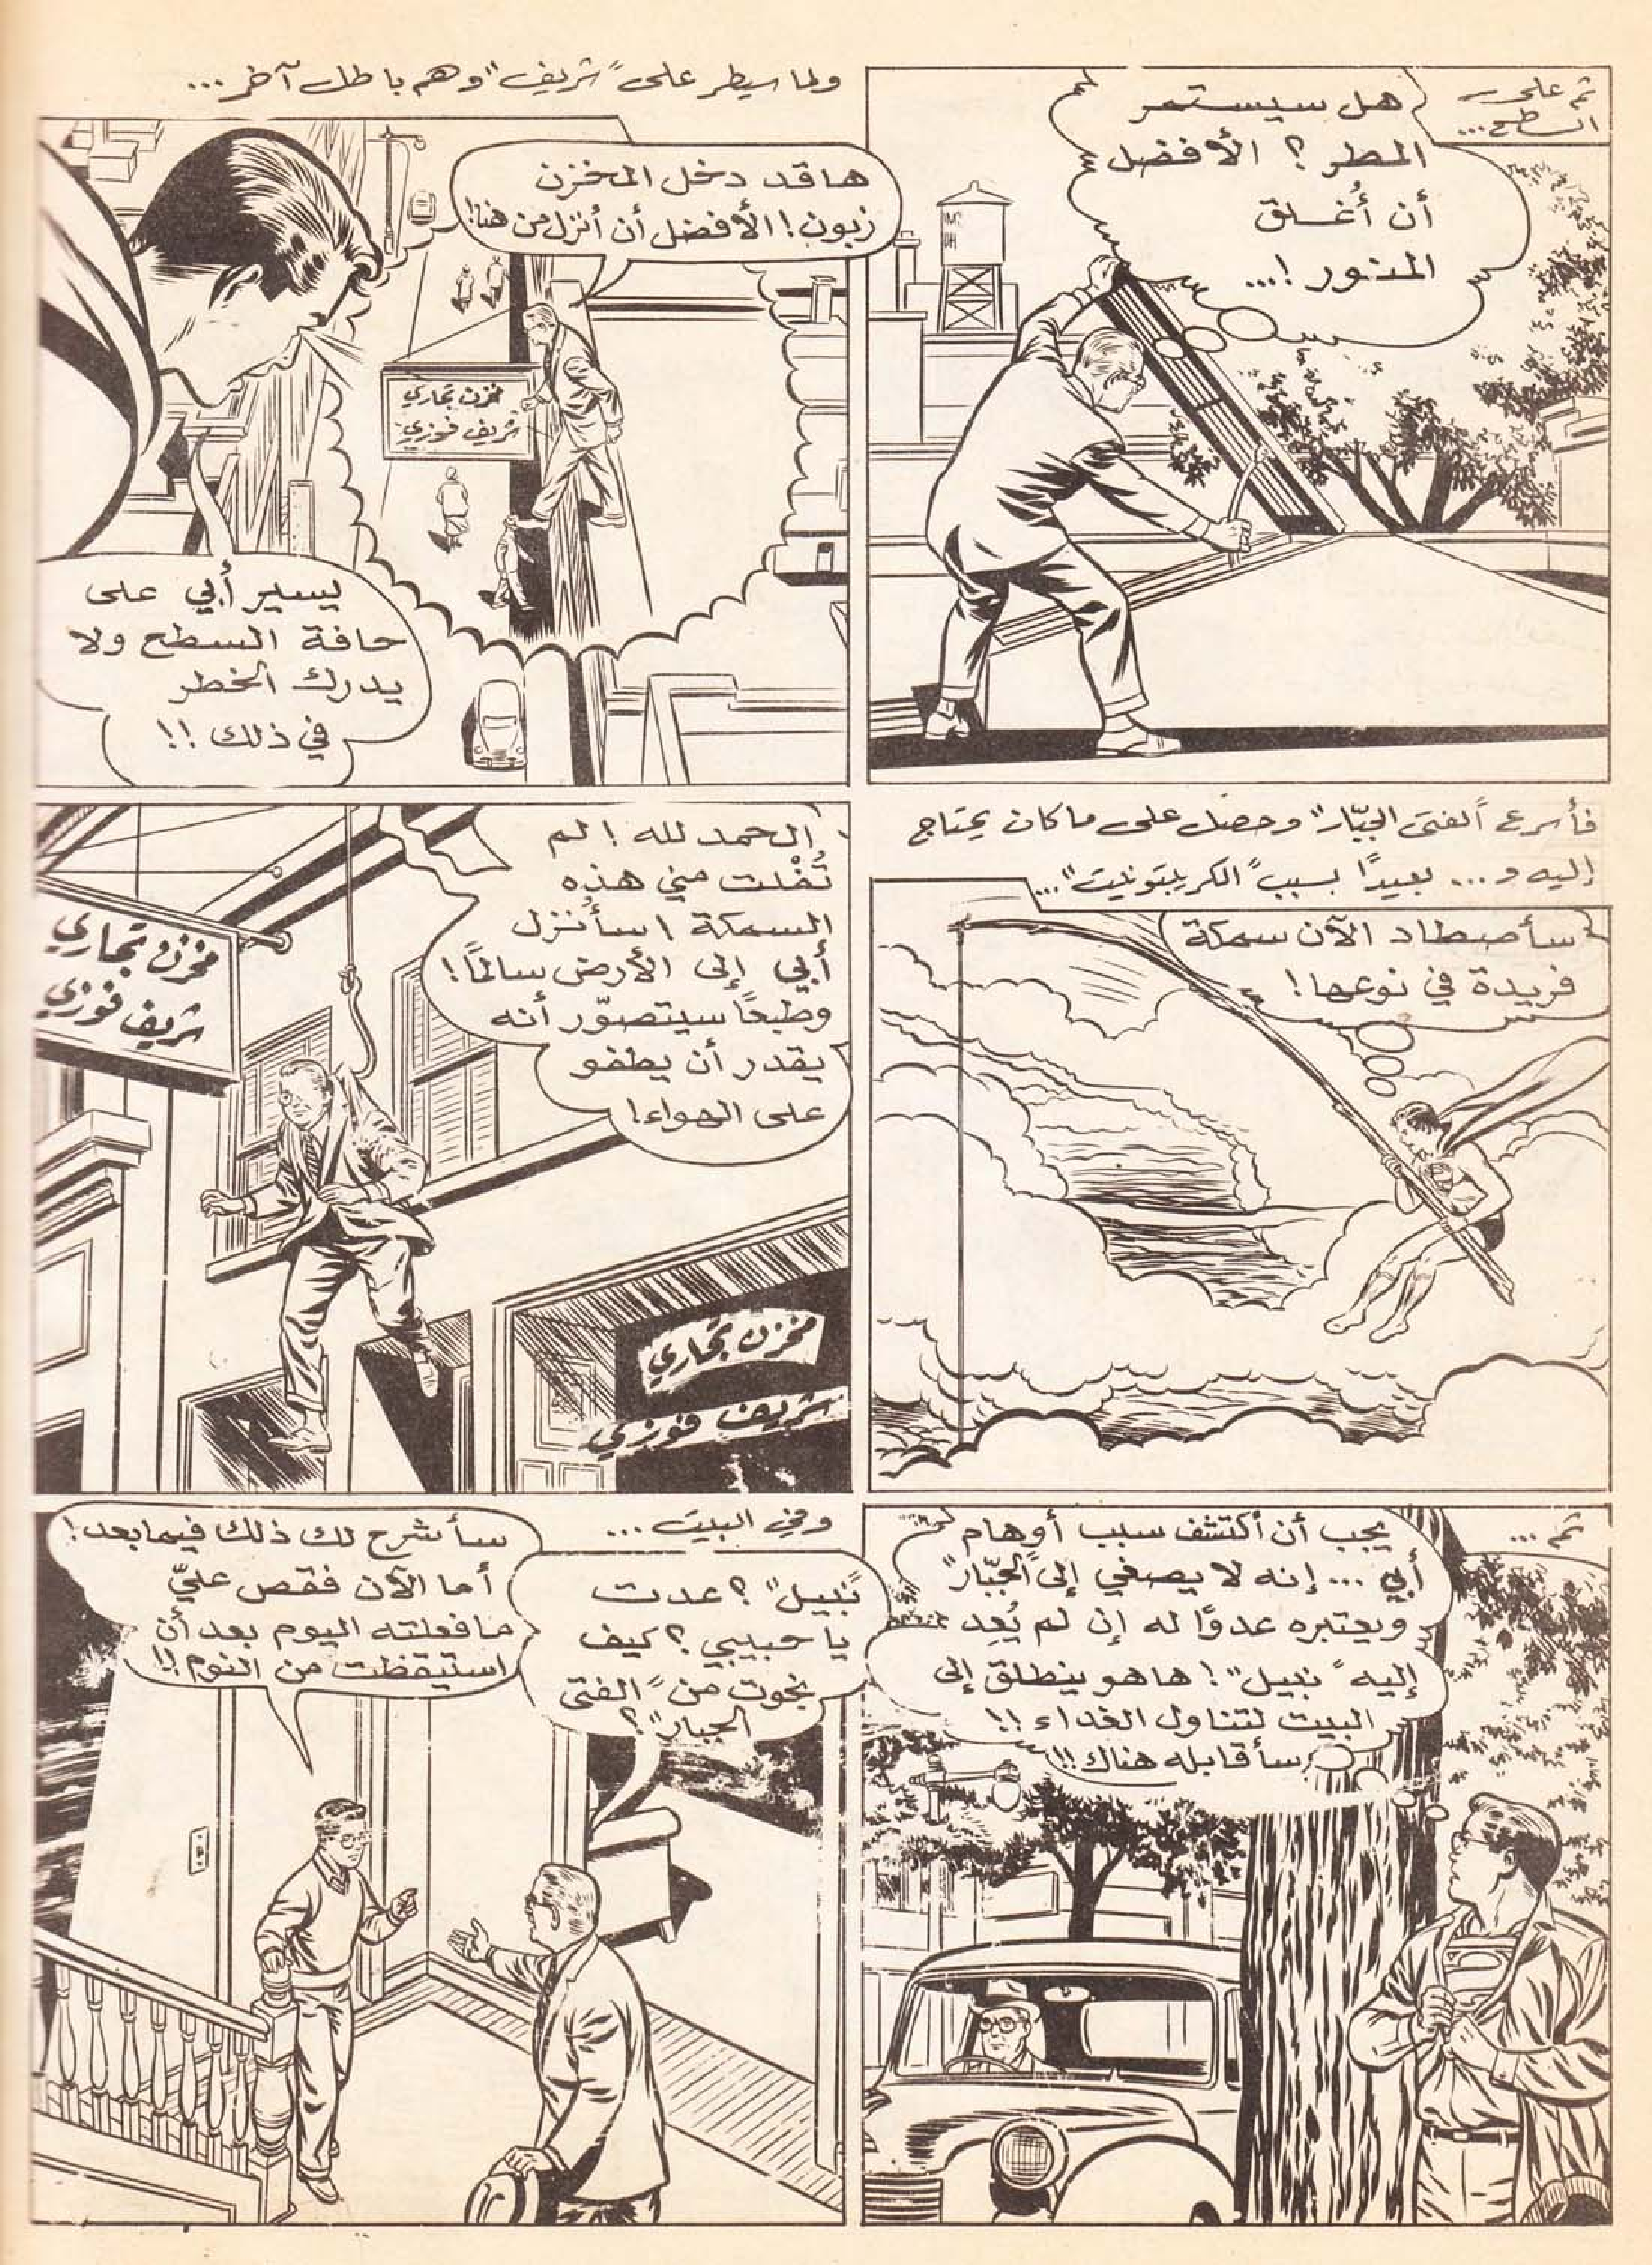 ثم على
السطح...
هل سيستمر
المطر؟ الأفضل
أن أُغلق
المنور!...
ولما سيطر على "شريف" وهم باطل آخر...
ها قد دخل المخزن
زبون! الأفضل أن أنزل من هنا!
مخزن تجاري
شريف فوزي
يسير أبي على
حافة السطح ولا
يدرك الخطر
في ذلك!!
فأسرع "الفتى الجبّار" وحصل على ما كان يحتاج
إليه و... بعيدًا بسبب "الكريبتونيت"...
سأصطاد الآن سمكة
فريدة في نوعها!
الحمد لله! لم
تُفْلت مني هذه
السمكة! سأُنزل
أبي إلى الأرض سالمًا!
وطبعًا سيتصوّر أنه
يقدر أن يطفو
على الهواء!
مخزن تجاري
شريف فوزي
مخزن تجاري
شريف فوزي
ثم...
يجب أن أكتشف سبب أوهام
أبي... إنه لا يصغي إلى "الجبّار"
ويعتبره عدوًا له إن لم يُعِد
إليه "نبيل"! ها هو ينطلق إلى
البيت لتناول الغداء!!
سأقابله هناك!!
وفي البيت...
"نبيل"؟ عدت
يا حبيبي؟ كيف
نجوت من "الفتى
الجبار"؟
سأشرح لك ذلك فيما بعد!
أما الآن فقص عليّ
ما فعلته اليوم بعد أن
استيقظت من النوم!!